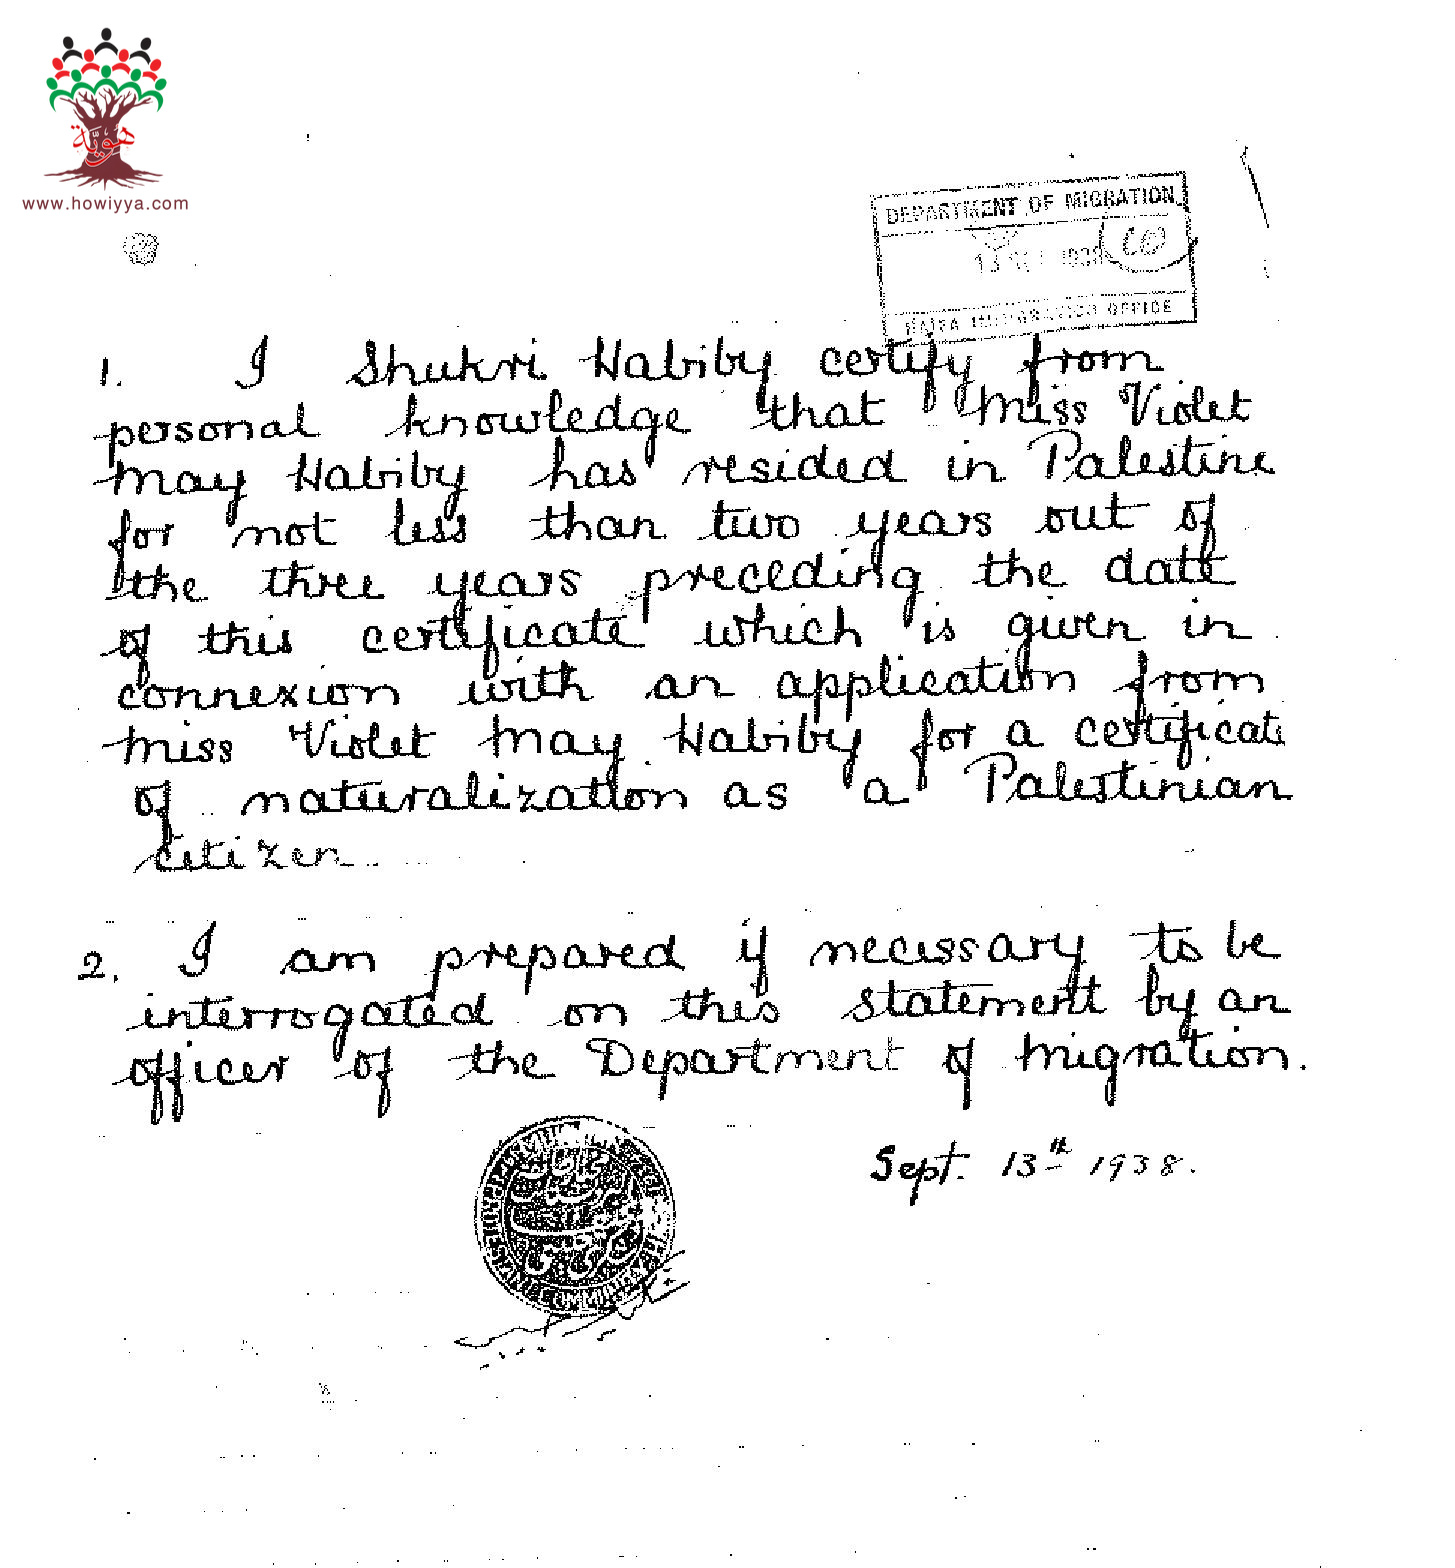 هوية
www.howiyya.com
DEPARTMENT OF MIGRATION
13 1938
HAIFA IMMIGRATION OFFICE
1. I Shukri Habiby certify from
personal knowledge that Miss Violet
May Habiby has resided in Palestine
for not less than two years out of
the three years preceding the date
of this certificate which is given in
connexion with an application from
Miss Violet May Habiby for a certificate
of naturalization as a Palestinian
citizen
2. I am prepared if necessary to be
interrogated on this statement by an
officer of the Department of Migration.
Sept. 13th 1938.